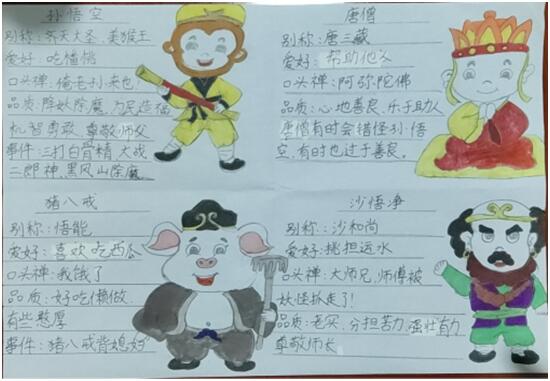 孙悟空
别称：齐天大圣、美猴王
爱好：吃蟠桃
口头禅：俺老孙来也！
品质：降妖除魔、为民造福
机智勇敢、尊敬师父
事件：三打白骨精、大战
二郎神、黑风山除魔
唐僧
别称：唐三藏
爱好：帮助他人
口头禅：阿弥陀佛
品质：心地善良、乐于助人
唐僧有时会错怪孙悟
空，有时也过于善良。
猪八戒
别称：悟能
爱好：喜欢吃西瓜
口头禅：我饿了
品质：好吃懒做、
有些憨厚
事件：猪八戒背媳妇
沙悟净
别称：沙和尚
爱好：挑担运水
口头禅：大师兄，师傅被
妖怪抓走了！
品质：老实、分担苦力、强壮有力
尊敬师长